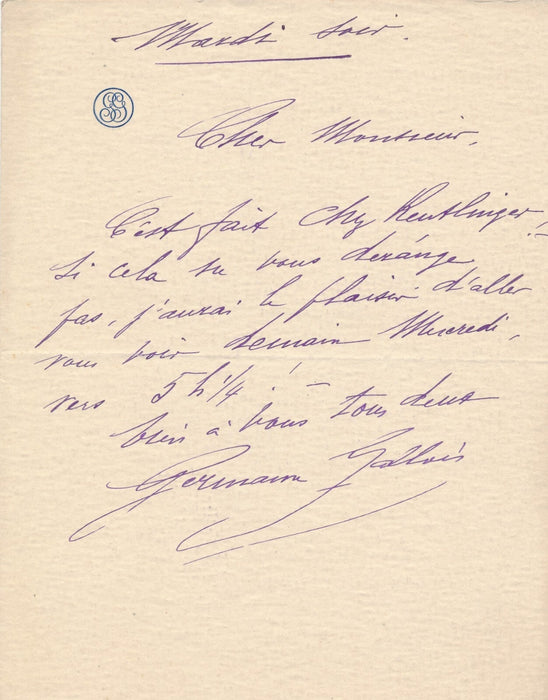 Mardi soir.
Cher Monsieur,
C'est fait chez Reutlinger!
Si cela ne vous dérange
pas, j'aurai le plaisir d'aller
vous voir demain Mercredi,
vers 5 h 1/4! –
bien à vous tous deux
Germaine Gallois